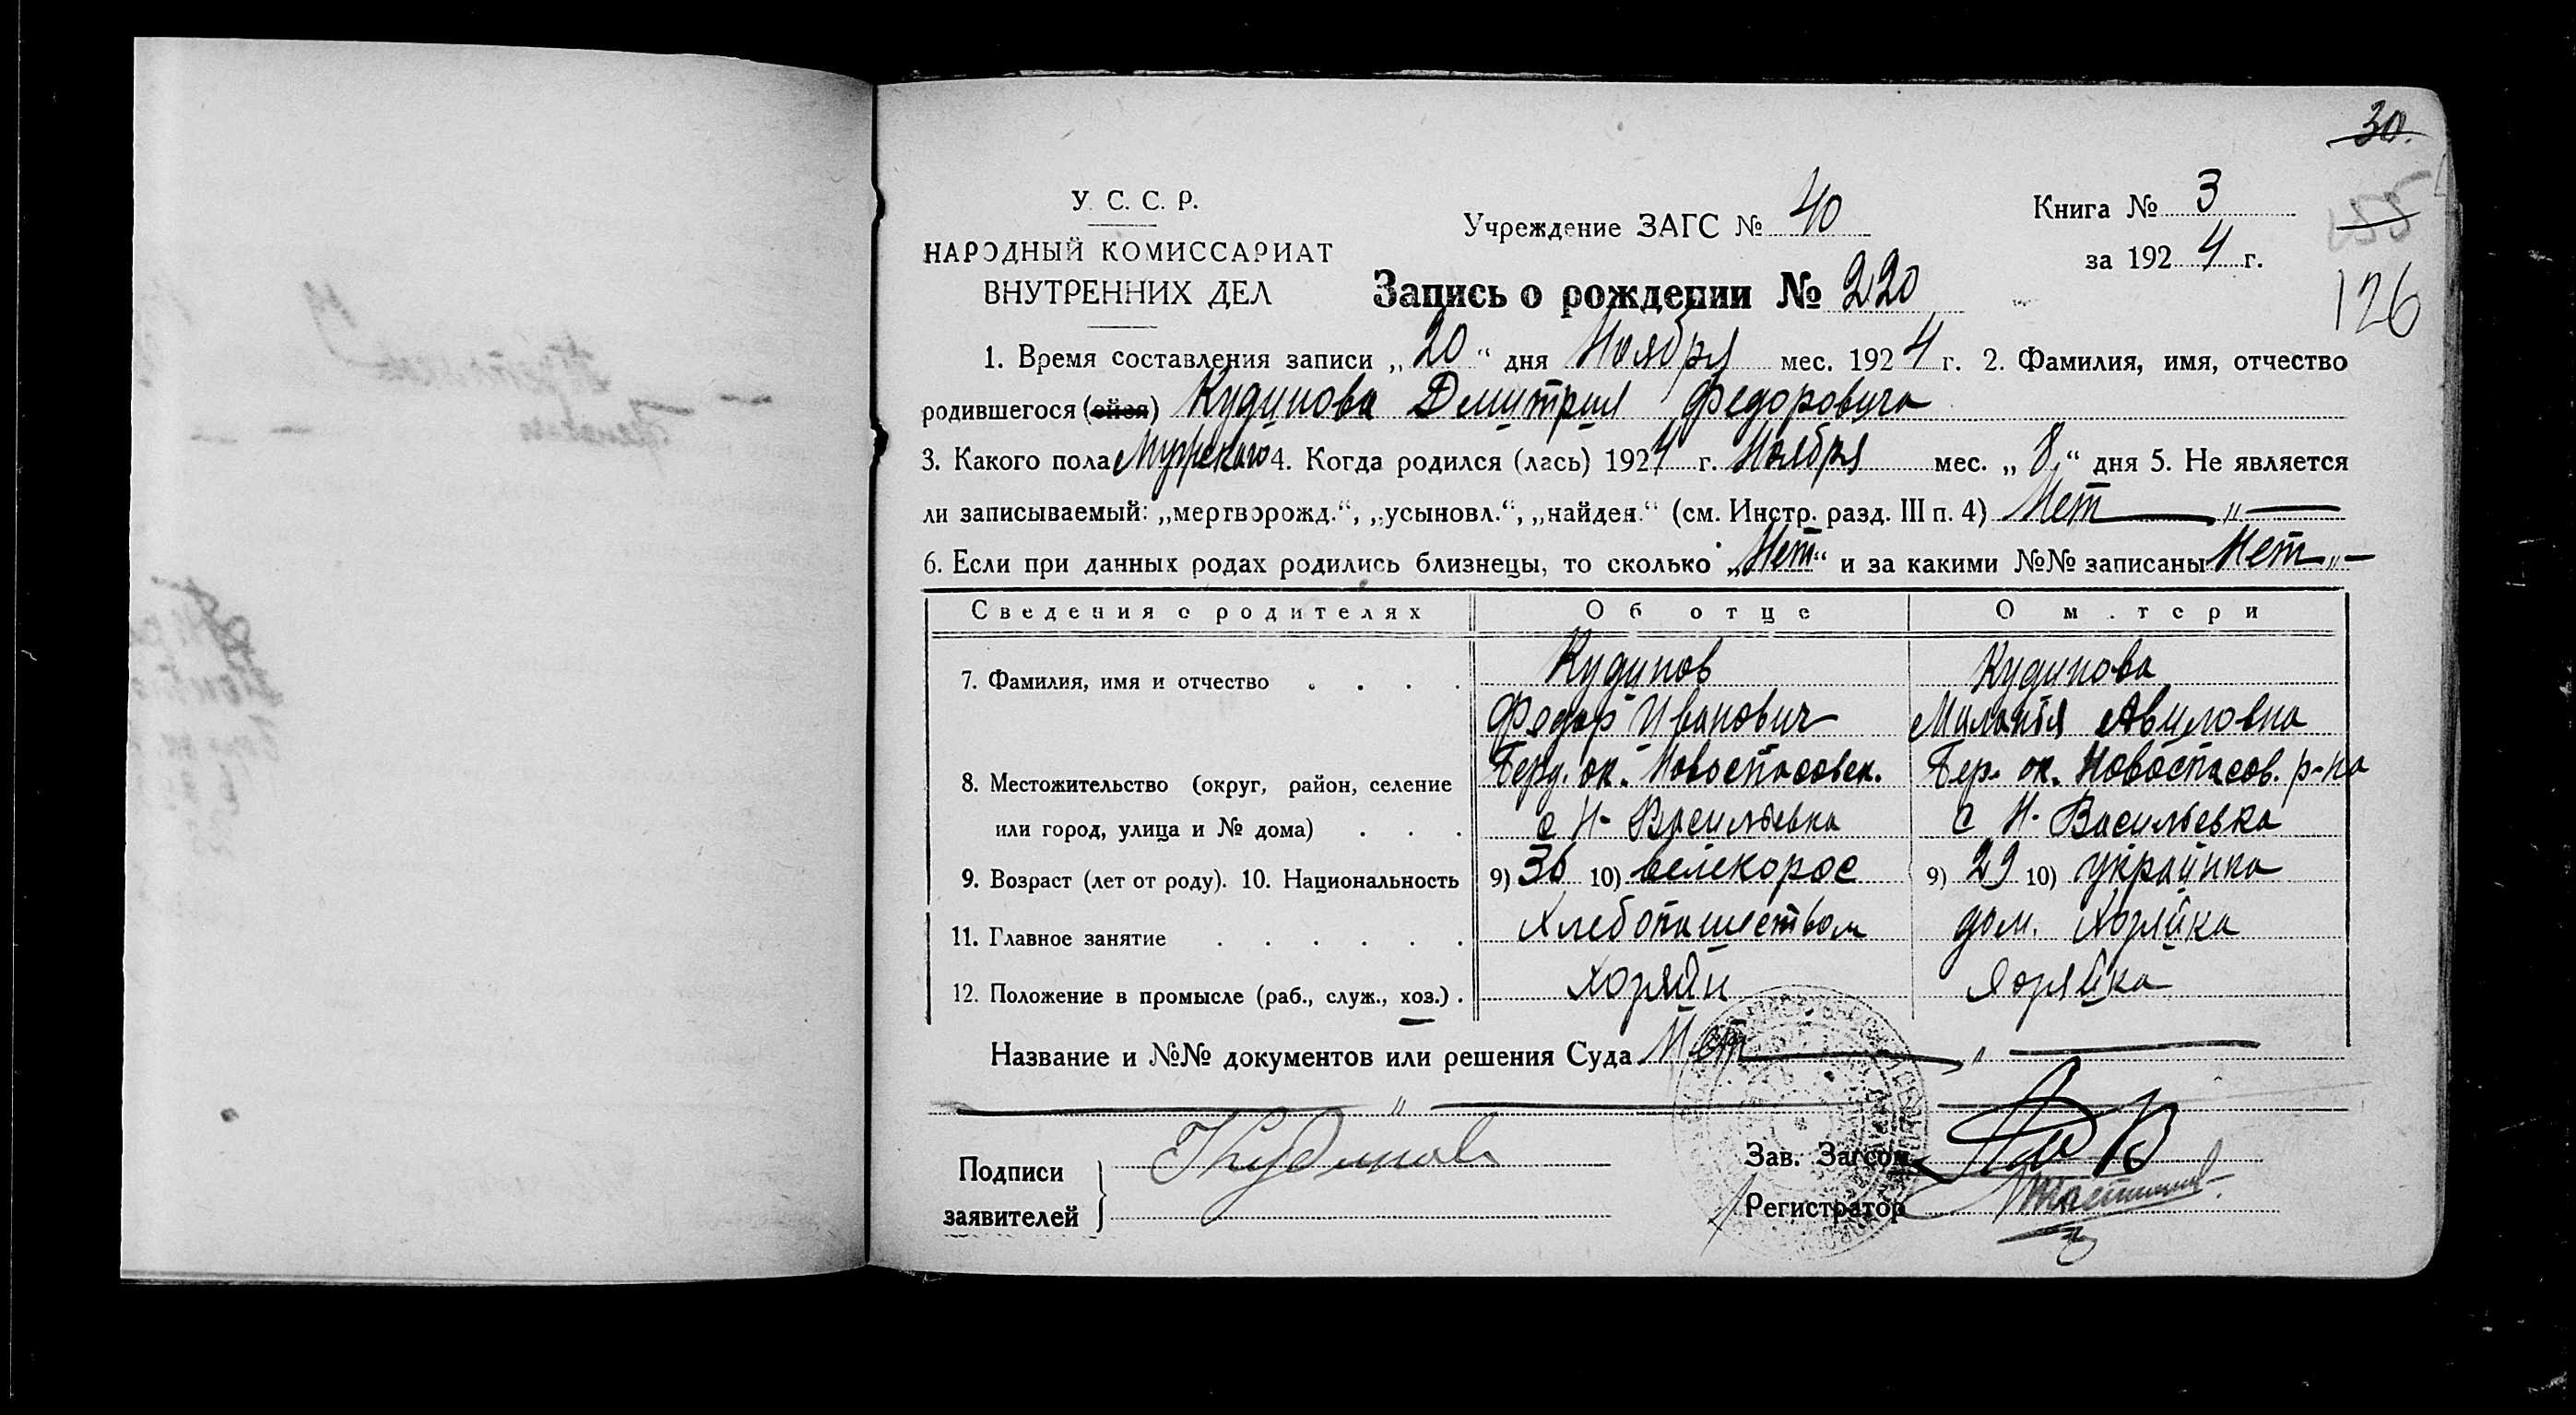 30.
У. С. С. Р.
НАРОДНЫЙ КОМИССАРИАТ
ВНУТРЕННИХ ДЕЛ
Учреждение ЗАГС № 40
Книга № 3
за 1924 г.
126
Запись о рождении № 220
1. Время составления записи „20“ дня Ноября мес. 1924 г. 2. Фамилия, имя, отчество
родившегося (ейся) Кудинова Дмитрия Федоровича
3. Какого пола Мужского 4. Когда родился (лась) 1924 г. Ноября мес. „8“ дня 5. Не является
ли записываемый: „мертворожд.“, „усыновл.“, „найден.“ (см. Инстр. разд. III п. 4) Нет — „ —
6. Если при данных родах родились близнецы, то сколько „Нет“ и за какими №№ записаны Нет „ —
Сведения о родителях Об отце О матери
7. Фамилия, имя и отчество . . . . Кудинов Кудинова
Федор Иванович Маланья Авиловна
8. Местожительство (округ, район, селение Берд. ок. Новоспасовск. Бер. ок. Новоспасов. р-на
или город, улица и № дома) . . . с Н-Васильевка с Н-Васильевка
9. Возраст (лет от роду). 10. Национальность 9) 36 10) велекорос 9) 29 10) украинка
11. Главное занятие . . . . . . Хлебопашеством дом. хозяйка
12. Положение в промысле (раб., служ., хоз.) . хозяйн хозяйка
Название и №№ документов или решения Суда Нет — „ —
— „ —
Подписи
заявителей
Кудинов
Зав. Загсом
Регистратор